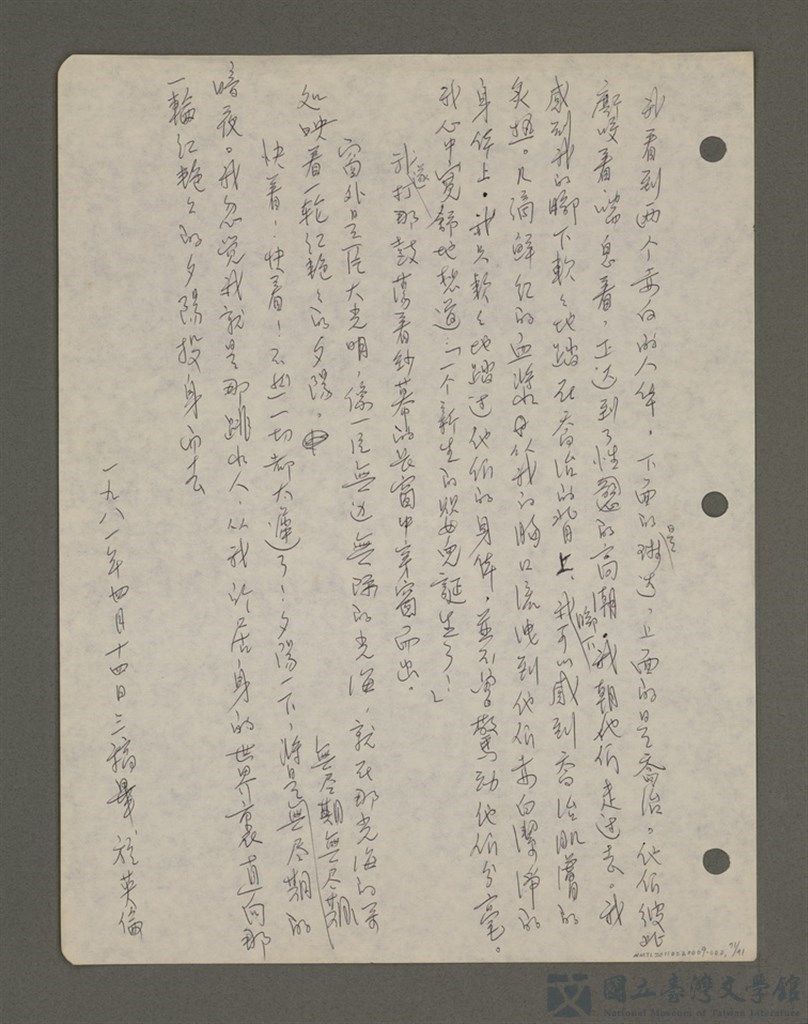 我看到两个赤白的人体，下面的是琳达，上面的是喬治。他们彼此
廝咬着，喘息着，正达到了性慾的高潮。我朝他们走过去。我
感到我的脚下軟々地踏在喬治的背上，我脚下可以感到喬治肌膚的
炙 。几滴鮮红的血漿从我的胸口流洩到他们赤白潔净的
身体上。我只軟々地踏过他们的身体，並不曾驚动他们分毫。
我心中寬舒地想道：「一个新生的嬰兒誕生了！」
我遂打那鼓荡着纱幕的长窗中穿窗而出。
窗外是一片大光明，像一片無边無际的光海，就在那光海的尽
处映着一轮红艳々的夕陽。
快着！快着！不然一切都太遲了！夕陽一下，将是無尽期無尽期的
暗夜。我忽觉我就是那跳水人，从我所居身的世界裏直向那
一輪红艳々的夕陽投身而去
一九八一年四月十四日三稿畢於英倫
國立臺灣文學館
National Museum of Taiwan Literature